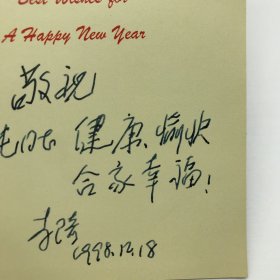 Best Wishes for
A Happy New Year
敬祝
健康 愉快
合家幸福！
1998.12.18